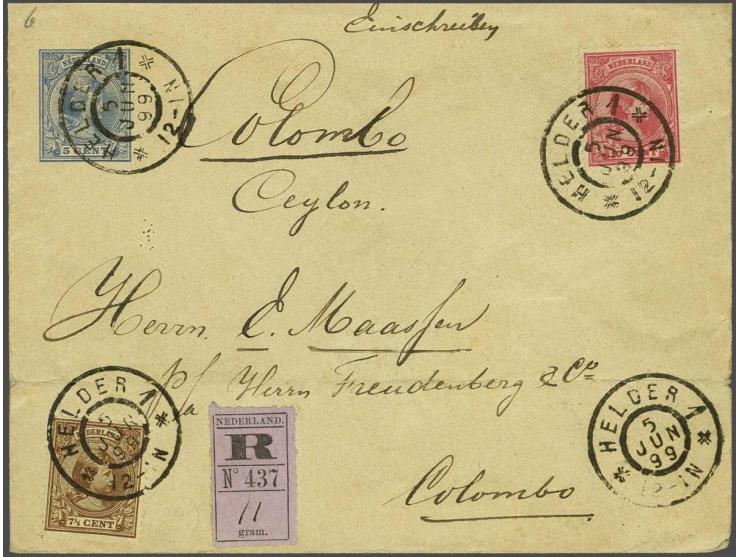 6
Einschreiben
NEDERLAND
5 CENT
HELDER 1
5
JUN
99
12-1N
NEDERLAND
HELDER 1
5
JUN
99
12-1N
Colombo
Ceylon.
Herrn E. Maassen
p/a Herrn Freudenberg & Co
Colombo
HELDER 1
5
99
12-1N
NEDERLAND
7½ CENT
NEDERLAND.
R
No 437
11
gram.
HELDER 1
5
JUN
99
12-1N